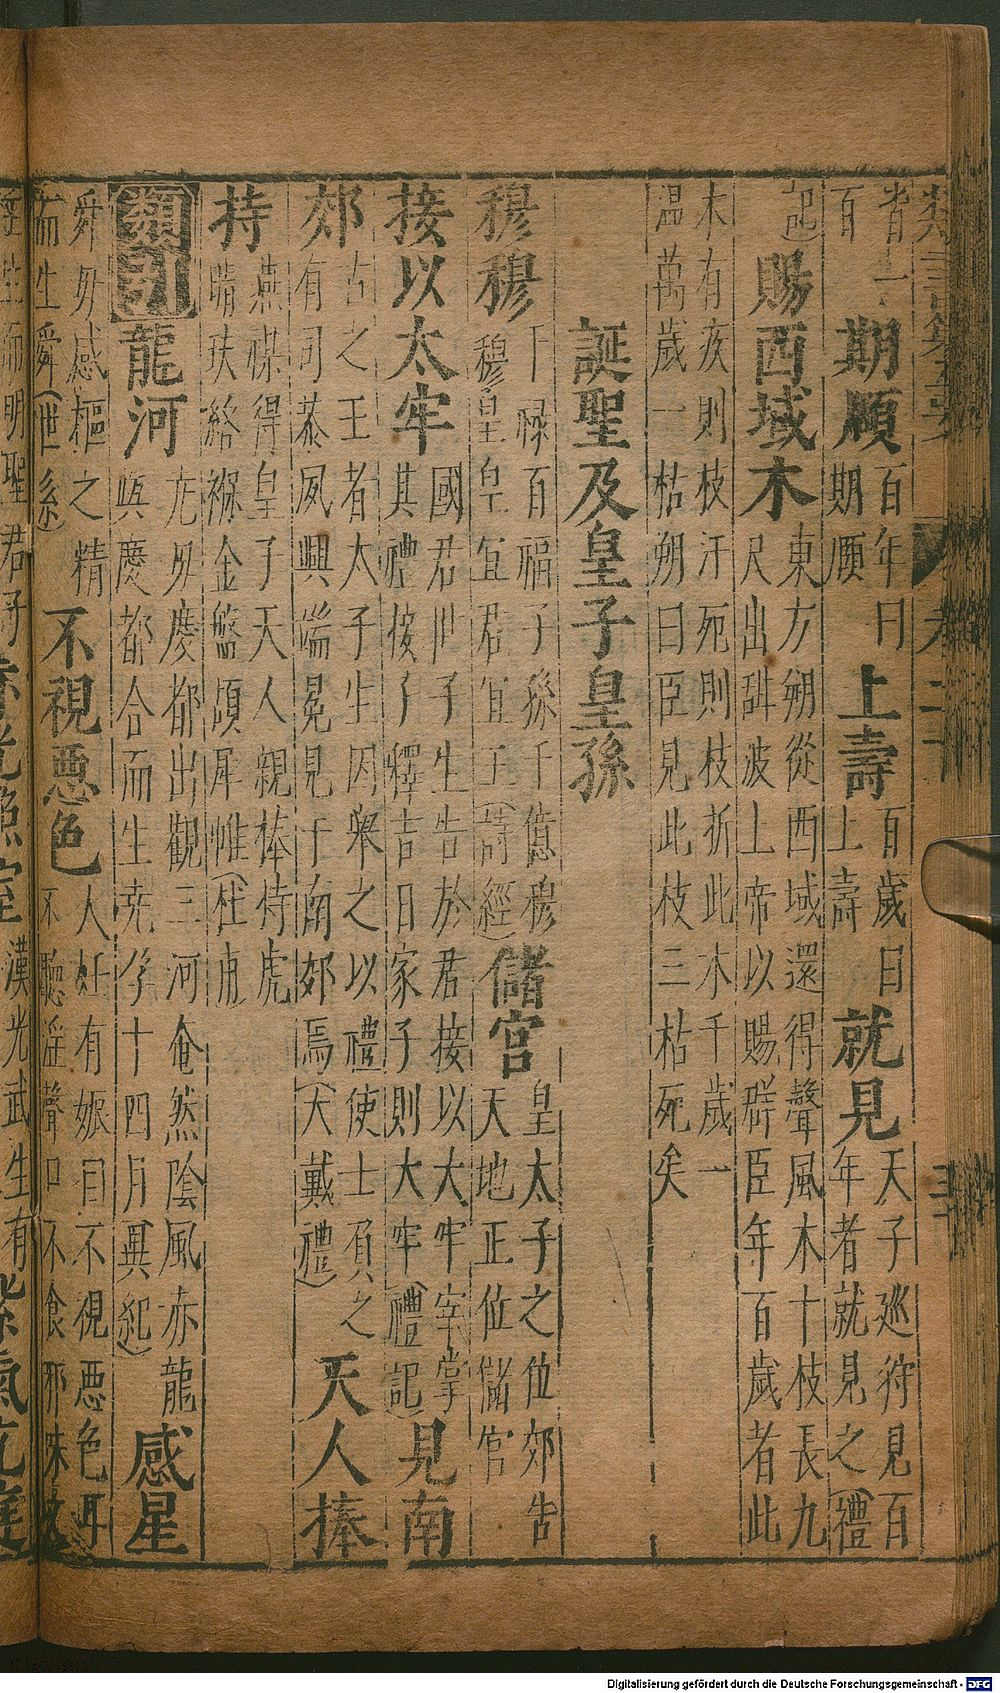 者一期頤百年曰上壽百歲曰就見天子廵狩見百
百期頤上壽年者就見之(禮
記)賜西域木東方朔從西域還得聲風木十枝長九
尺出甜波上帝以賜群臣年百歲者此
木有疾則枝汗死則枝折此木千歲一
温萬歲一枯朔曰臣見此枝三枯死矣
誕聖及皇子皇孫
穆穆干祿百福子孫千億穆儲宫皇太子之位郊告
穆皇皇宜君宜王(詩經)天地正位儲宫
接以太牢國君世子生告於君接以大牢宰掌見南
其禮接子釋吉日冢子則大牢(禮記)
郊古之王者太子生因舉之以禮使士負之天人捧
有司恭夙興端冕見于南郊焉(大戴禮)
持燕禖得皇子天人親捧侍虎
睛玞絡褓金盤頒犀帷(杜甫
龍河尭毋慶都出觀三河奄然陰風赤龍感星
與慶都合而生尭孕十四月(異紀)
舜毋感樞之精不視惡色人妊有娠目不視惡色耳
而生舜(世系)不聽滛聲口不食邪味
生而明聖君子室漢光武生有
Digitalisierung gefördert durch die Deutsche Forschungsgemeinschaft - DFG